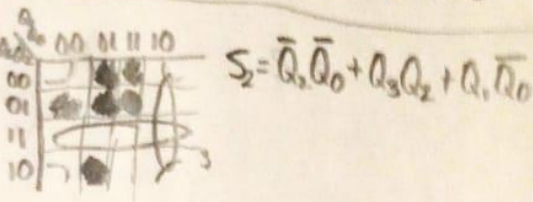 00 01 11 10
00
01
11
10
S₂ = Q̅₁Q̅₀ + Q₃Q₂ + Q₁Q̅₀